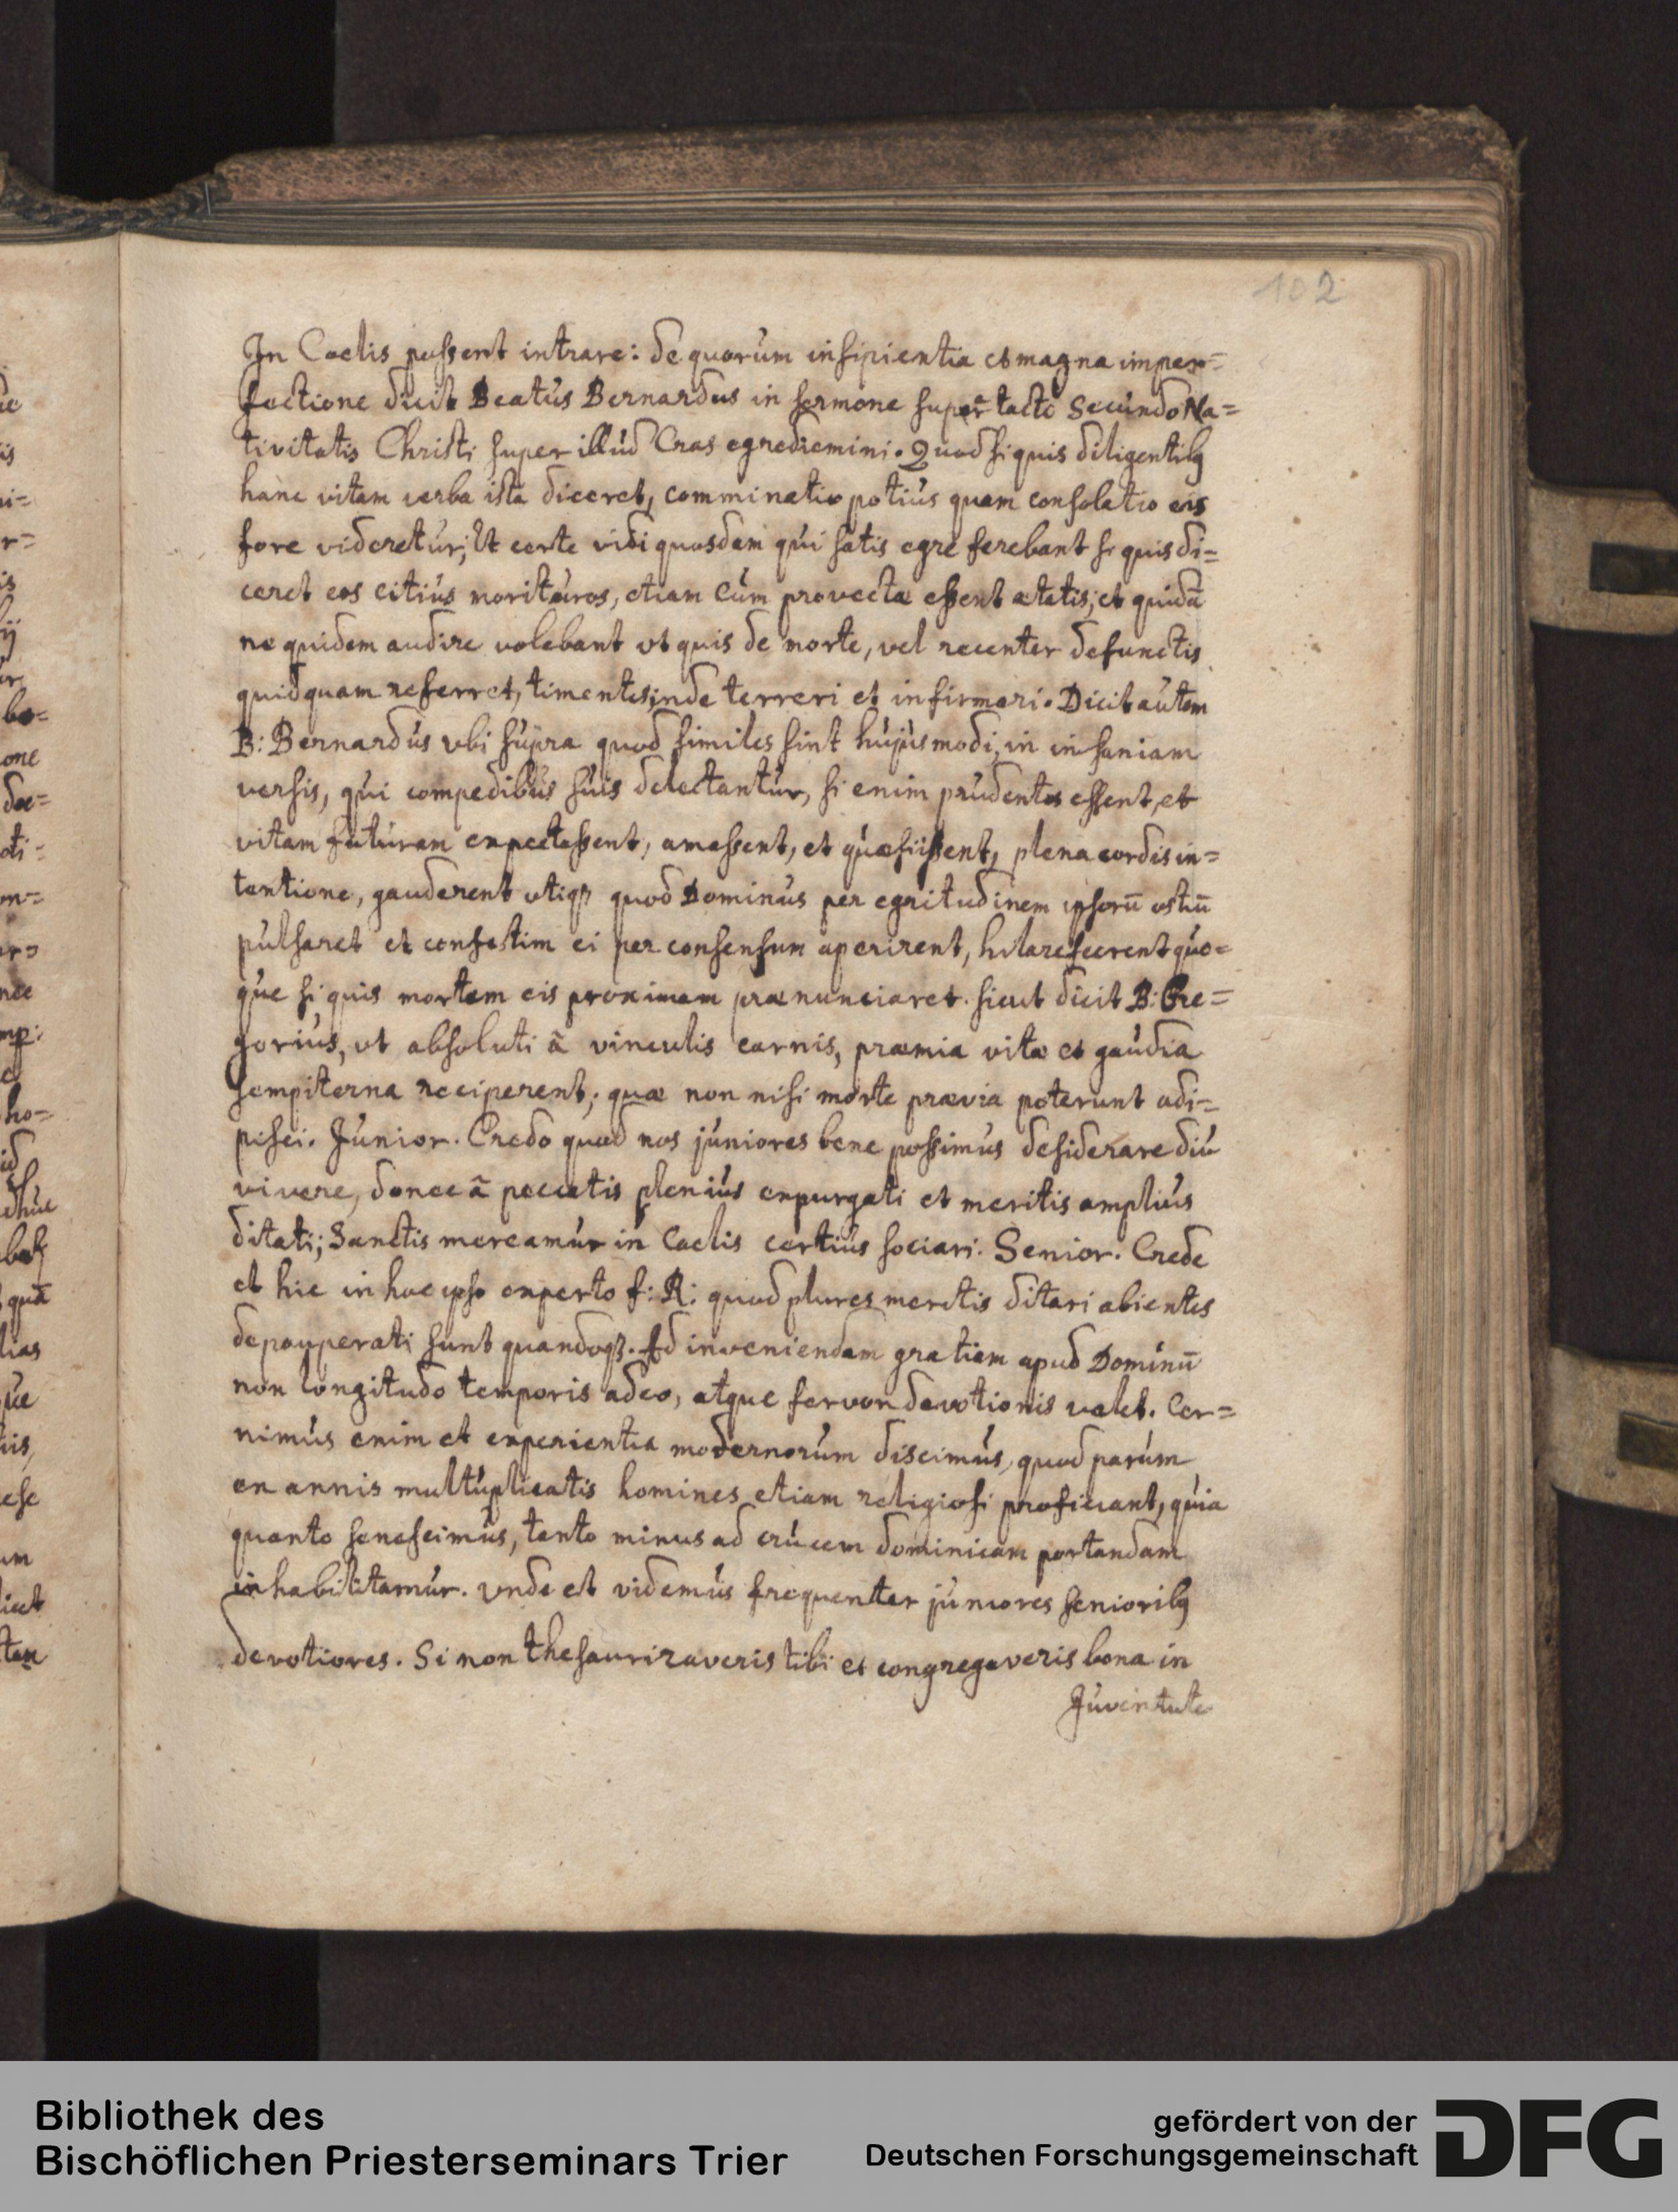 102
In Coelis possent intrare: de quorum insipientia et magna imper=
fectione dicit Beatus Bernardus in sermone super tacto Secundo Na=
tivitatis Christi super illud Cras egrediemini. Quod si quis diligentibꝯ
hanc vitam verba ista diceret, comminatio potius quam consolatio eis
fore videretur; Et certe vidi quosdam qui satis egre ferebant si quis di=
ceret eos citius morituros, etiam cum provectæ essent ætatis; et quidā
ne quidem audire volebant ut quis de morte, vel recenter defunctis
quidquam referret, timentes inde terreri et infirmari. Dicit autem
B: Bernardus ubi supra quod similes sint hujusmodi, in insaniam
versis, qui compedibus suis delectantur, si enim prudentes essent, et
vitam futuram expectassent, amassent, et quæsiissent, plena cordis in=
tentione, gauderent utiqꝫ quod Dominus per egritudinem ipsorū ostiū
pulsaret et confestim ei per consensum aperirent, hilarescerent quo=
que si quis mortem eis proximam prænunciaret. sicut dicit B: Gre=
gorius, ut absoluti à vinculis carnis, præmia vitæ et gaudia
sempiterna reciperent; quæ non nisi morte prævia poterunt adi=
pisci. Junior. Credo quod nos juniores bene possimus desiderare diu
vivere, donec à peccatis plenius expurgati et meritis amplius
ditati; Sanctis mereamur in Coelis certius sociari. Senior. Crede
et hic in hoc ipso experto f: R: quod plures meritis ditari abientes
depauperati sunt quandoqꝫ. Ad inveniendam gratiam apud Dominū
non longitudo temporis adeo, atque fervor devotionis valet. Cer=
nimus enim et experientia modernorum discimus, quod parum
en annis multuplicatis homines etiam religiosi proficiant, quia
quanto senescimus, tanto minus ad crucem dominicam portandam
inhabilitamur. Unde et videmus frequenter juniores senioribꝯ
devotiores. Si non thesaurizaveris tibi et congregaveris bona in
Juventute
Bibliothek des
Bischöflichen Priesterseminars Trier
gefördert von der
Deutschen Forschungsgemeinschaft
DFG